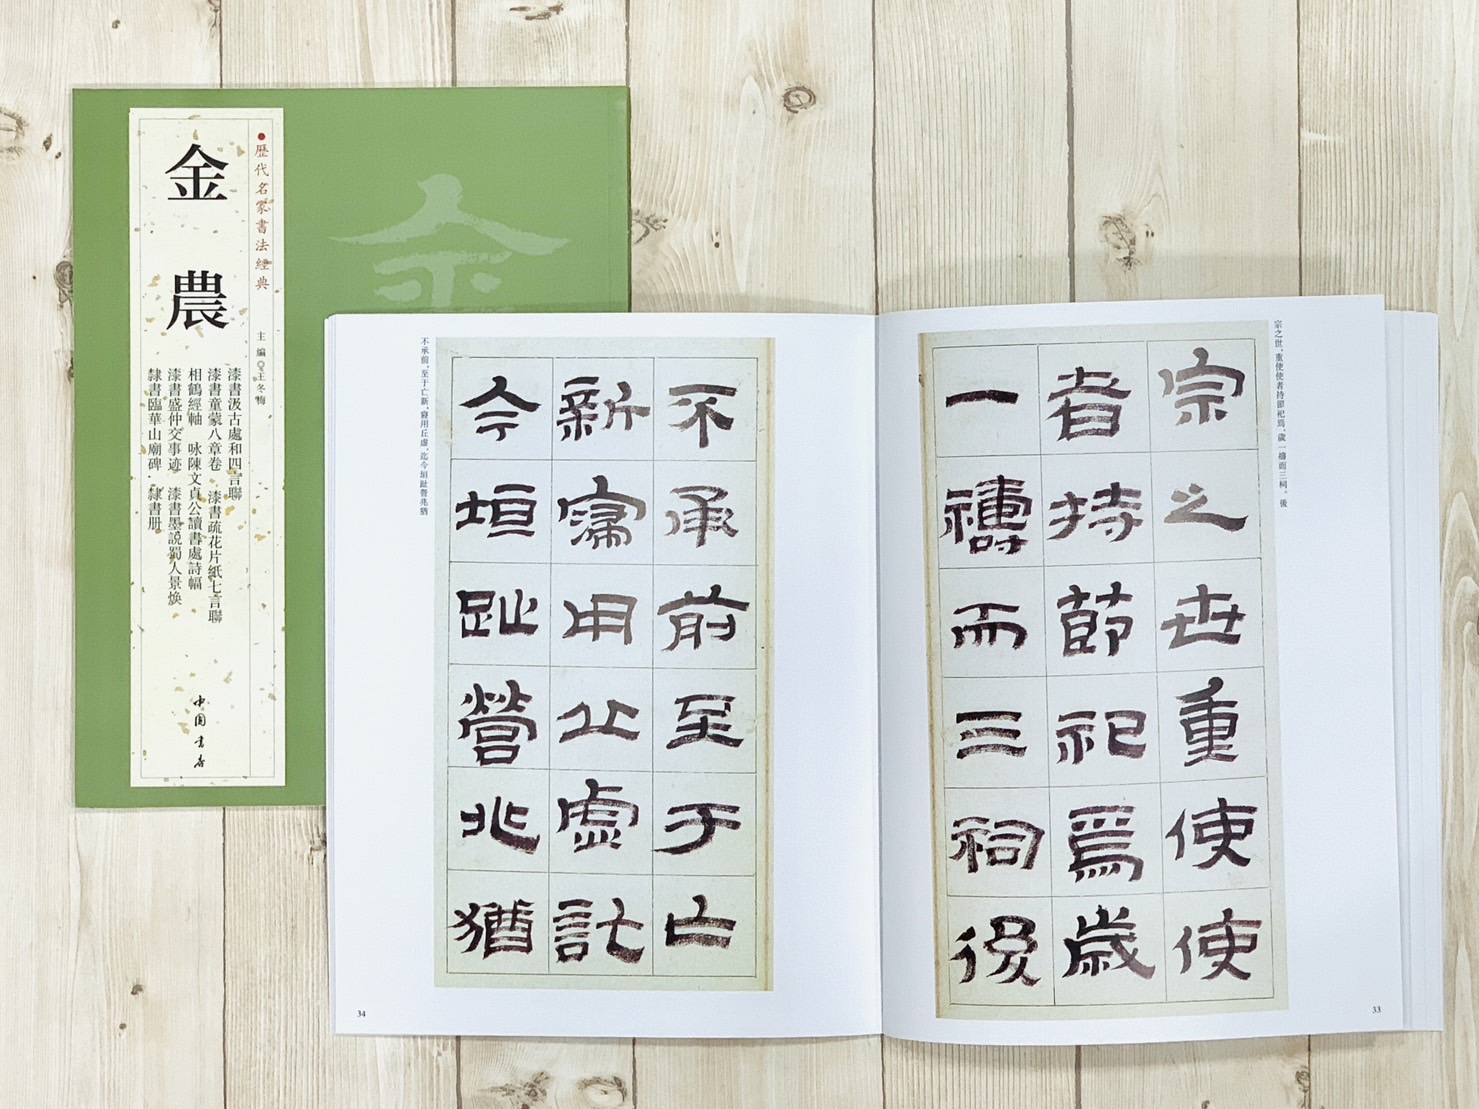 歷代名家書法經典
金農
主編◎王冬梅
漆書汲古處和四言聯
漆書童蒙八章卷　漆書疏花片紙七言聯
相鶴經軸　咏陳文貞公讀書處詩幅
漆書盛仲交事迹　漆書墨説蜀人景焕
隸書臨華山廟碑　隸書册
中国书店
金
宗之世，重使使者持節祀焉，歲一禱而三祠。後
宗之世重使使
者持節祀焉歲
一禱而三祠後
33
不承前，至于亡新，寖用丘虛，訖今垣趾營兆猶
不承前至于亡
新寖用丘虛訖
今垣趾營兆猶
34